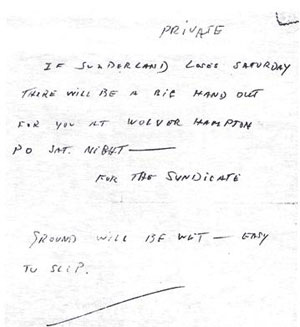 PRIVATE
IF SUNDERLAND LOSES SATURDAY
THERE WILL BE A BIG HAND OUT
FOR YOU AT WOLVER HAMPTON
PO SAT. NIGHT —
FOR THE SUNDICATE
GROUND WILL BE WET — EASY
TO SLIP.